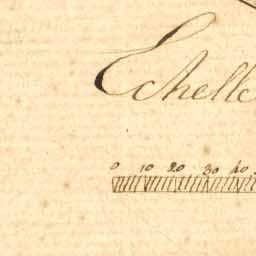 Echelle
0 10 20 30 40